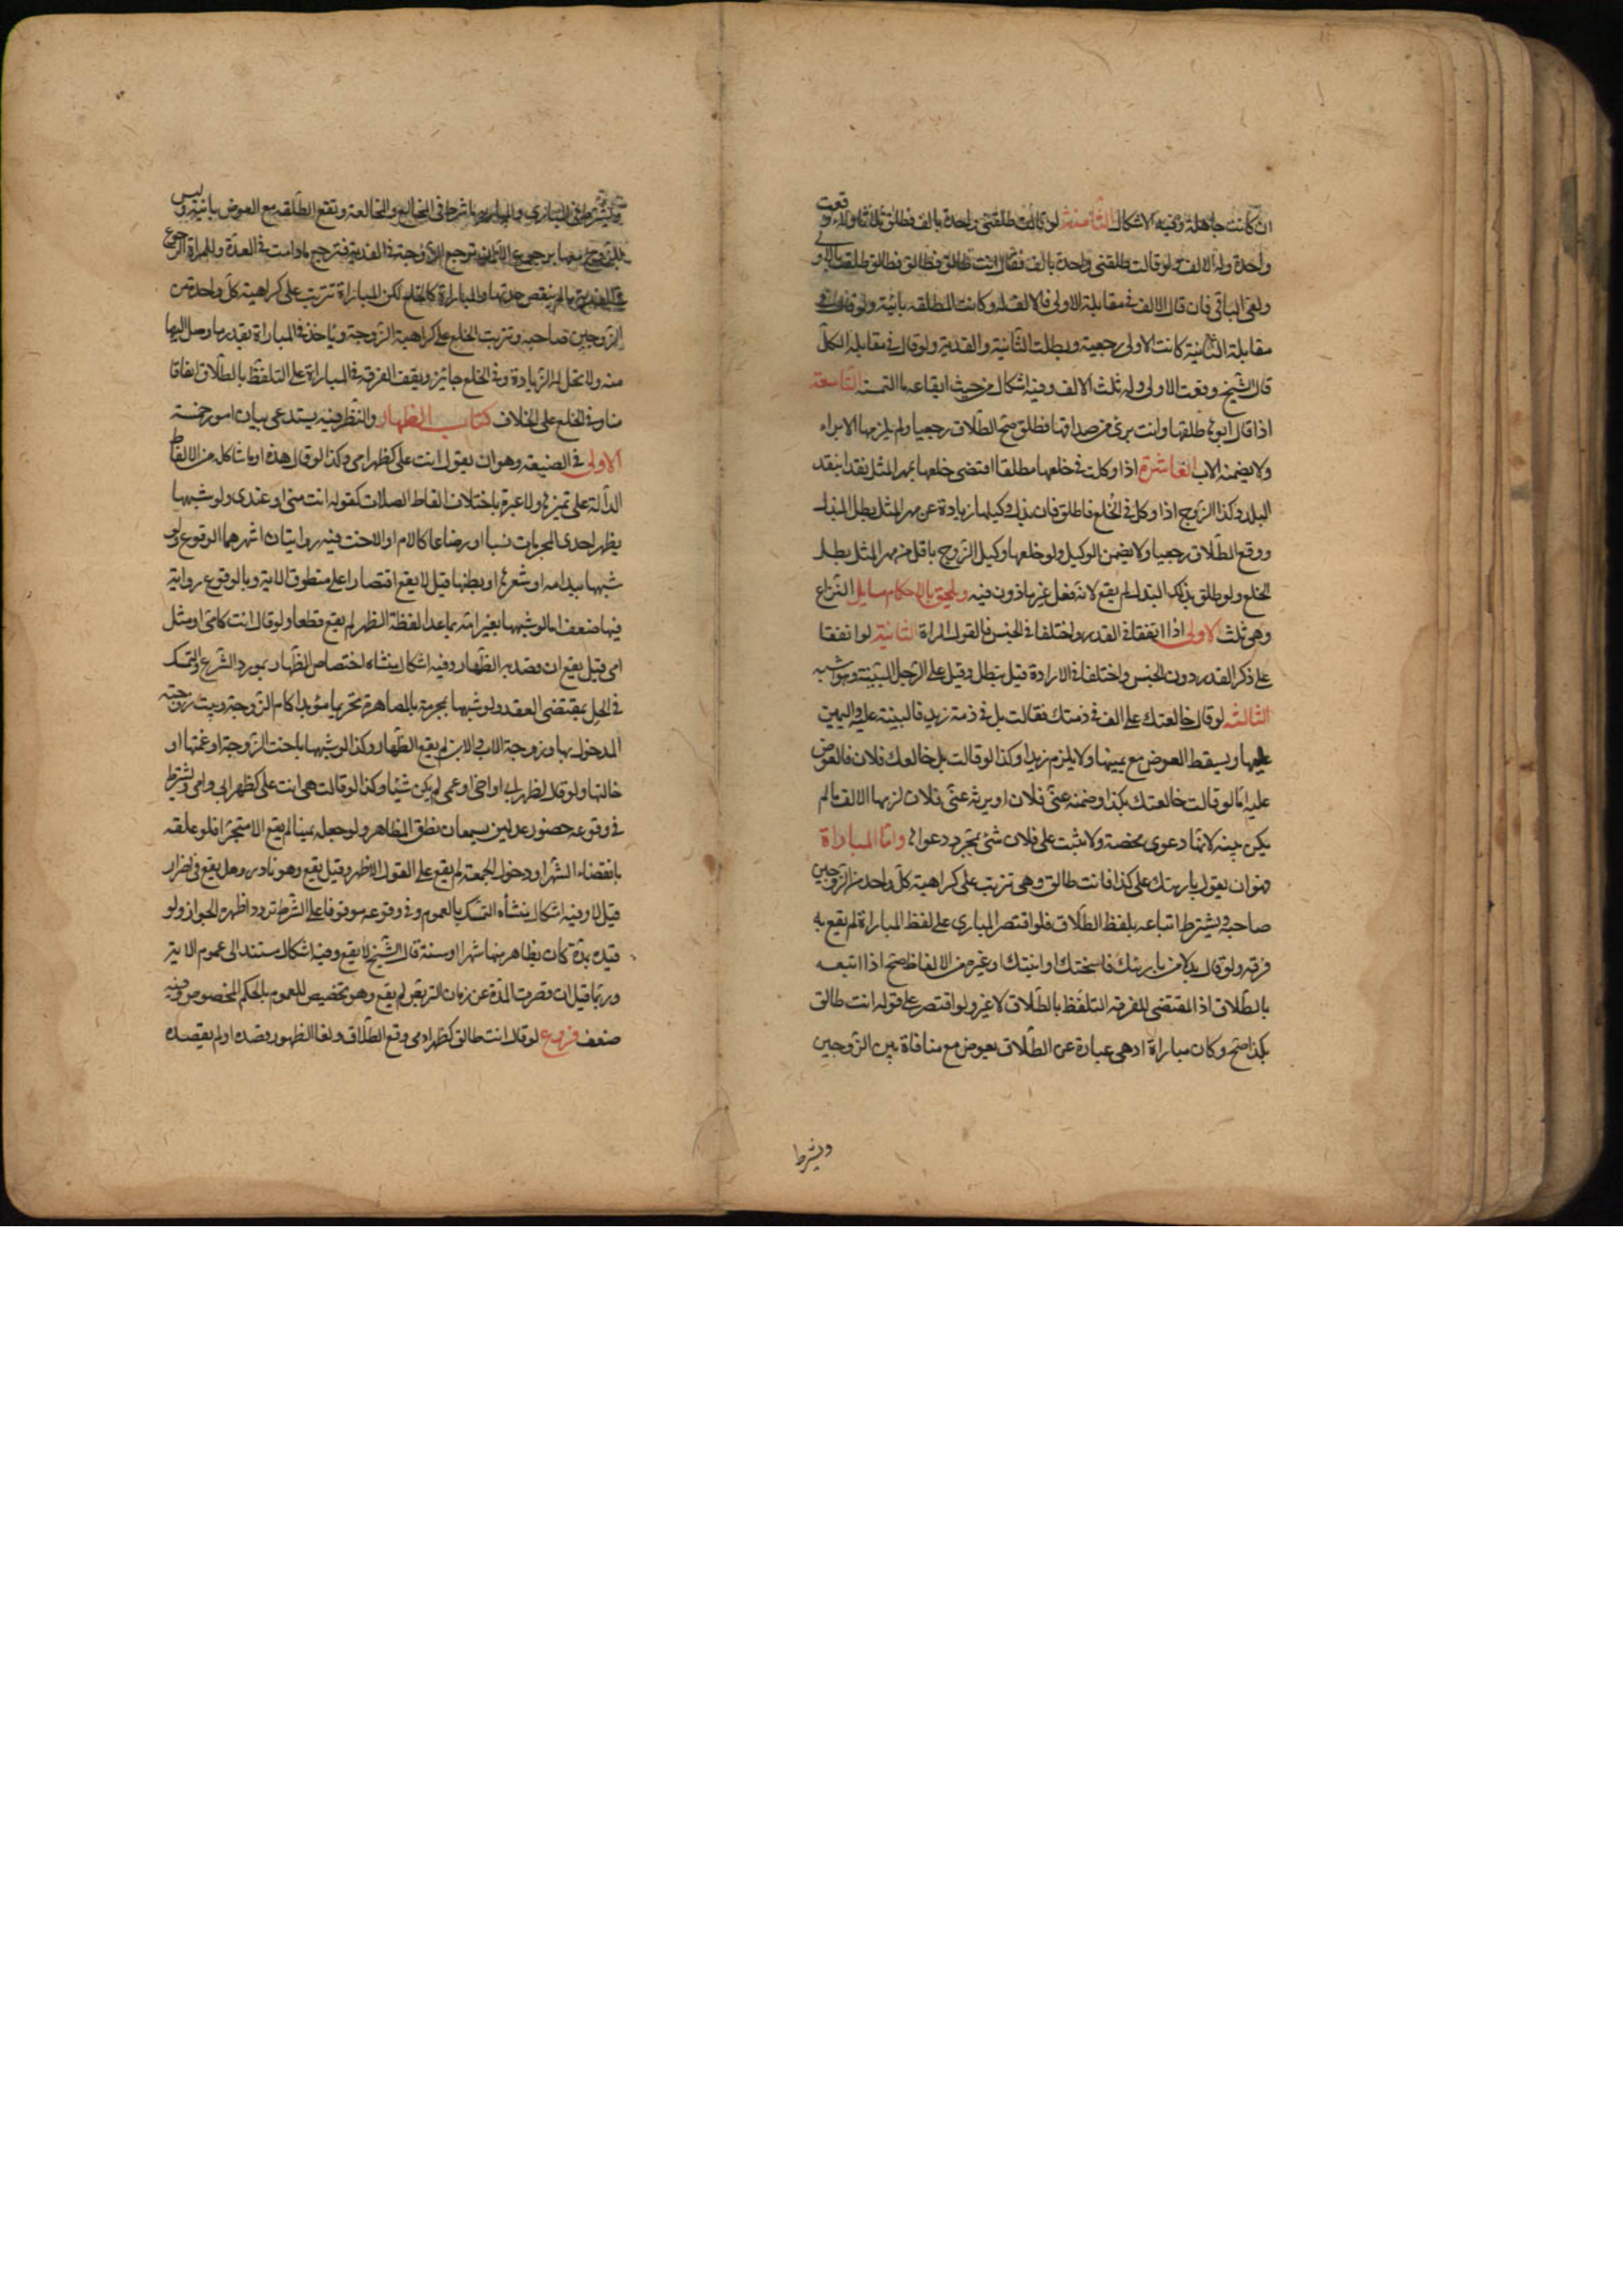 ان كانت جاهلة وفيه الاشكال الثامنة لو قالت طلقني واحدة بالف فطلق ثلاثا ولاء وقعت
واحدة وله الالف ولو قالت طلقني واحدة بالف فقال انت طالق فطالق فطالق طلقت بالاولى
ولغى الباقي فان قال الالف في مقابلة الاولى فالالف له وكانت المطلقه بائنة ولو قال في
مقابلة الثانية كانت الاولى رجعية وبطلت الثانية والفدية ولو قال في مقابله الكل
قال الشيخ وقعت الاولى وله ثلث الالف وفيه اشكال من حيث ايقاعه ما التمسته التاسعة
اذا قال ابوها طلقها وانت برئ من صداقها فطلق صح الطلاق رجعيا ولم يلزمها الابراء
ولا يضمنه الاب العاشرة اذا وكلت في خلعها مطلقا اقتضى خلعها بمهر المثل نقدا بنقد
البلد وكذا الزوج اذا وكل في الخلع فاطلق فان بذل وكيلها زيادة عن مهر المثل بطل البذل
ووقع الطلاق رجعيا ولا يضمن الوكيل ولو خلعها وكيل الزوج باقل من مهر المثل بطل
الخلع ولو طلق بذلك البذل لم يقع لانه فعل غير ماذون فيه ويلحق بالاحكام مسايل النزاع
وهي ثلث الاولى اذا اتفقا في القدر واختلفا في الجنس فالقول قول المراة الثانية لو اتفقا
على ذكر القدر دون الجنس واختلفا في الارادة قيل يبطل وقيل على الرجل البينة وهو اشبه
الثالثه لو قال خالعتك على الف في ذمتك فقالت بل في ذمة زيد فالبينة عليه واليمين
عليها ويسقط العوض مع يمينها ولا يلزم زيدا وكذا لو قالت بل خالعك فلان فالعوض
عليه اما لو قالت خالعتك بكذا وضمنه عني فلان او يزنه عني فلان لزمها الالف ما لم
يكن بينه لانها دعوى محضة ولا يثبت على فلان شئ بمجرد دعواها واما المباراة
فهو ان يقول باريتك على كذا فانت طالق وهي تترتب على كراهية كل واحد من الزوجين
صاحبه ويشترط اتباعه بلفظ الطلاق فلو اقتصر المباري على لفظ المباراة لم يقع به
فرقه ولو قال بدلا من باريتك فاسختك او ابنتك او غيره من الالفاظ صح اذا اتبعه
بالطلاق اذ المقتضي للفرقه التلفظ بالطلاق لا غير ولو اقتصر على قوله انت طالق
بكذا صح وكان مباراة اذ هي عبارة عن الطلاق بعوض مع منافاة بين الزوجين
ويشترط
ويشترط في المباري والمبارئة ما شرط في المخالع والمخالعة وتقع الطلقه مع العوض باينة وليس
للزوج معها رجوع الا ان ترجع الزوجة في الفدية فيرجع ما دامت في العدة وللمراة الرجوع
في الفدية ما لم ينقض عدتها والمباراة كالخلع لكن المباراة تترتب على كراهية كل واحد من
الزوجين صاحبه وترتب الخلع على كراهية الزوجة وياخذ في المباراة بقدر ما وصل اليها
منه ولا تحل له الزيادة وفي الخلع جائز ويقف الفرقه في المباراة على التلفظ بالطلاق اتفاقا
منا وفي الخلع على الخلاف كتاب الظهار والنظر فيه يستدعي بيان امور خمسة
الاولى في الصيغة وهو ان يقول انت علي كظهر امي وكذا لو قال هذه او ما شاكله من الالفاظ
الدالة على تميزها ولا عبرة باختلاف الفاظ الصلات كقوله انت مني او عندي ولو شبهها
بظهر احدى المحرمات نسبا او رضاعا كالام او الاخت فيه روايتان اشهرهما الوقوع ولو
شبهها بيد امه او شعرها او بطنها قيل لا يقع اقتصارا على منطوق الاية وبالوقوع رواية
فيها ضعف اما لو شبهها بغير امه بما عدا لفظة الظهر لم يقع قطعا ولو قال انت كامي او مثل
امي قيل يقع ان قصد به الظهار وفيه اشكال ينشاء اختصاص الظهار بمورد الشرع والتمسك
في الحل بمقتضى العقد ولو شبهها بمحرمة بالمصاهرة تحريما مؤبدا كام الزوجة وبنت زوجته
المدخول بها وزوجة الاب والابن لم يقع الظهار وكذا لو شبهها باخت الزوجة او عمتها او
خالتها ولو قال كظهر ابي او اخي او عمي لم يكن شيئا وكذا لو قالت هي انت علي كظهر ابي وامي ويشترط
في وقوعه حضور عدلين يسمعان نطق المظاهر ولو جعله يمينا لم يقع الا منجزا فلو علقه
بانقضاء الشهر او دخول الجمعة لم يقع على القول الاظهر وقيل يقع وهو نادر وهل يقع في اضرار
قيل لا وفيه اشكال ينشأه التمسك بالعموم وفي وقوعه موقوفا على الشرط تردد اظهره الجواز ولو
قيده بمدة كان يظاهر منها شهرا او سنة قال الشيخ لا يقع وفيه اشكال مستند الى عموم الاية
وربما قيل ان قصرت المدة عن زمان التربص لم يقع وهو تخصيص للعموم بالحكم المخصوص وفيه
ضعف فروع لو قال انت طالق كظهر امي وقع الطلاق ولغا الظهار وقصده او لم يقصده